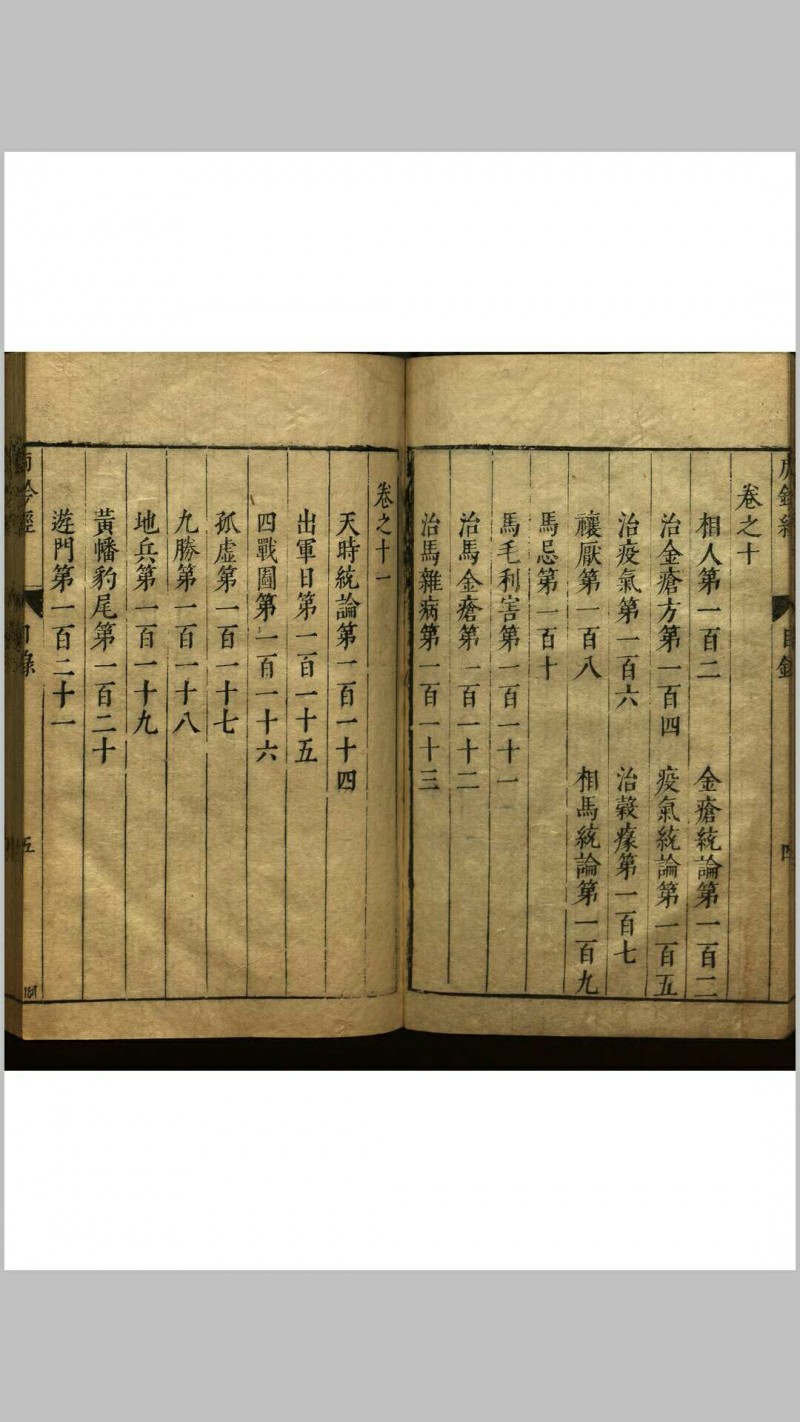 虎鈐經
目錄
四
卷之十
相人第一百二 金瘡統論第一百二
治金瘡方第一百四 疫氣統論第一百五
治疫氣第一百六 治穀瘴第一百七
禳厭第一百八 相馬統論第一百九
馬忌第一百十
馬毛利害第一百十一
治馬金瘡第一百十二
治馬雜病第一百十三
卷之十一
天時統論第一百一十四
出軍日第一百一十五
四戰圖第一百一十六
孤虛第一百一十七
九勝第一百一十八
地兵第一百一十九
黃幡豹尾第一百二十
遊門第一百二十一
鈐經
目錄
五